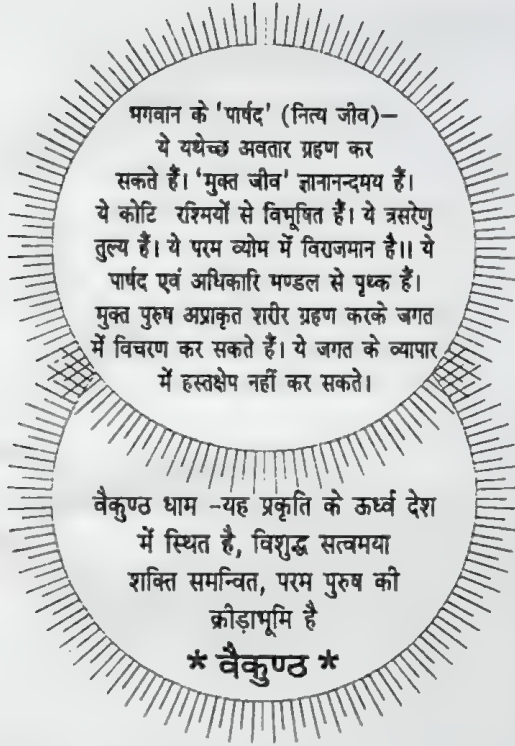 भगवान के 'पार्षद' (नित्य जीव)–
ये यथेच्छ अवतार ग्रहण कर
सकते हैं। 'मुक्त जीव' ज्ञानानन्दमय हैं।
ये कोटि रश्मियों से विभूषित हैं। ये त्रसरेणु
तुल्य हैं। ये परम व्योम में विराजमान है।। ये
पार्षद एवं अधिकारि मण्डल से पृथ्क हैं।
मुक्त पुरुष अप्राकृत शरीर ग्रहण करके जगत
में विचरण कर सकते हैं। ये जगत के व्यापार
में हस्तक्षेप नहीं कर सकते।
वैकुण्ठ धाम -यह प्रकृति के ऊर्ध्व देश
में स्थित है, विशुद्ध सत्वमया
शक्ति समन्वित, परम पुरुष की
क्रीड़ाभूमि है
* वैकुण्ठ *